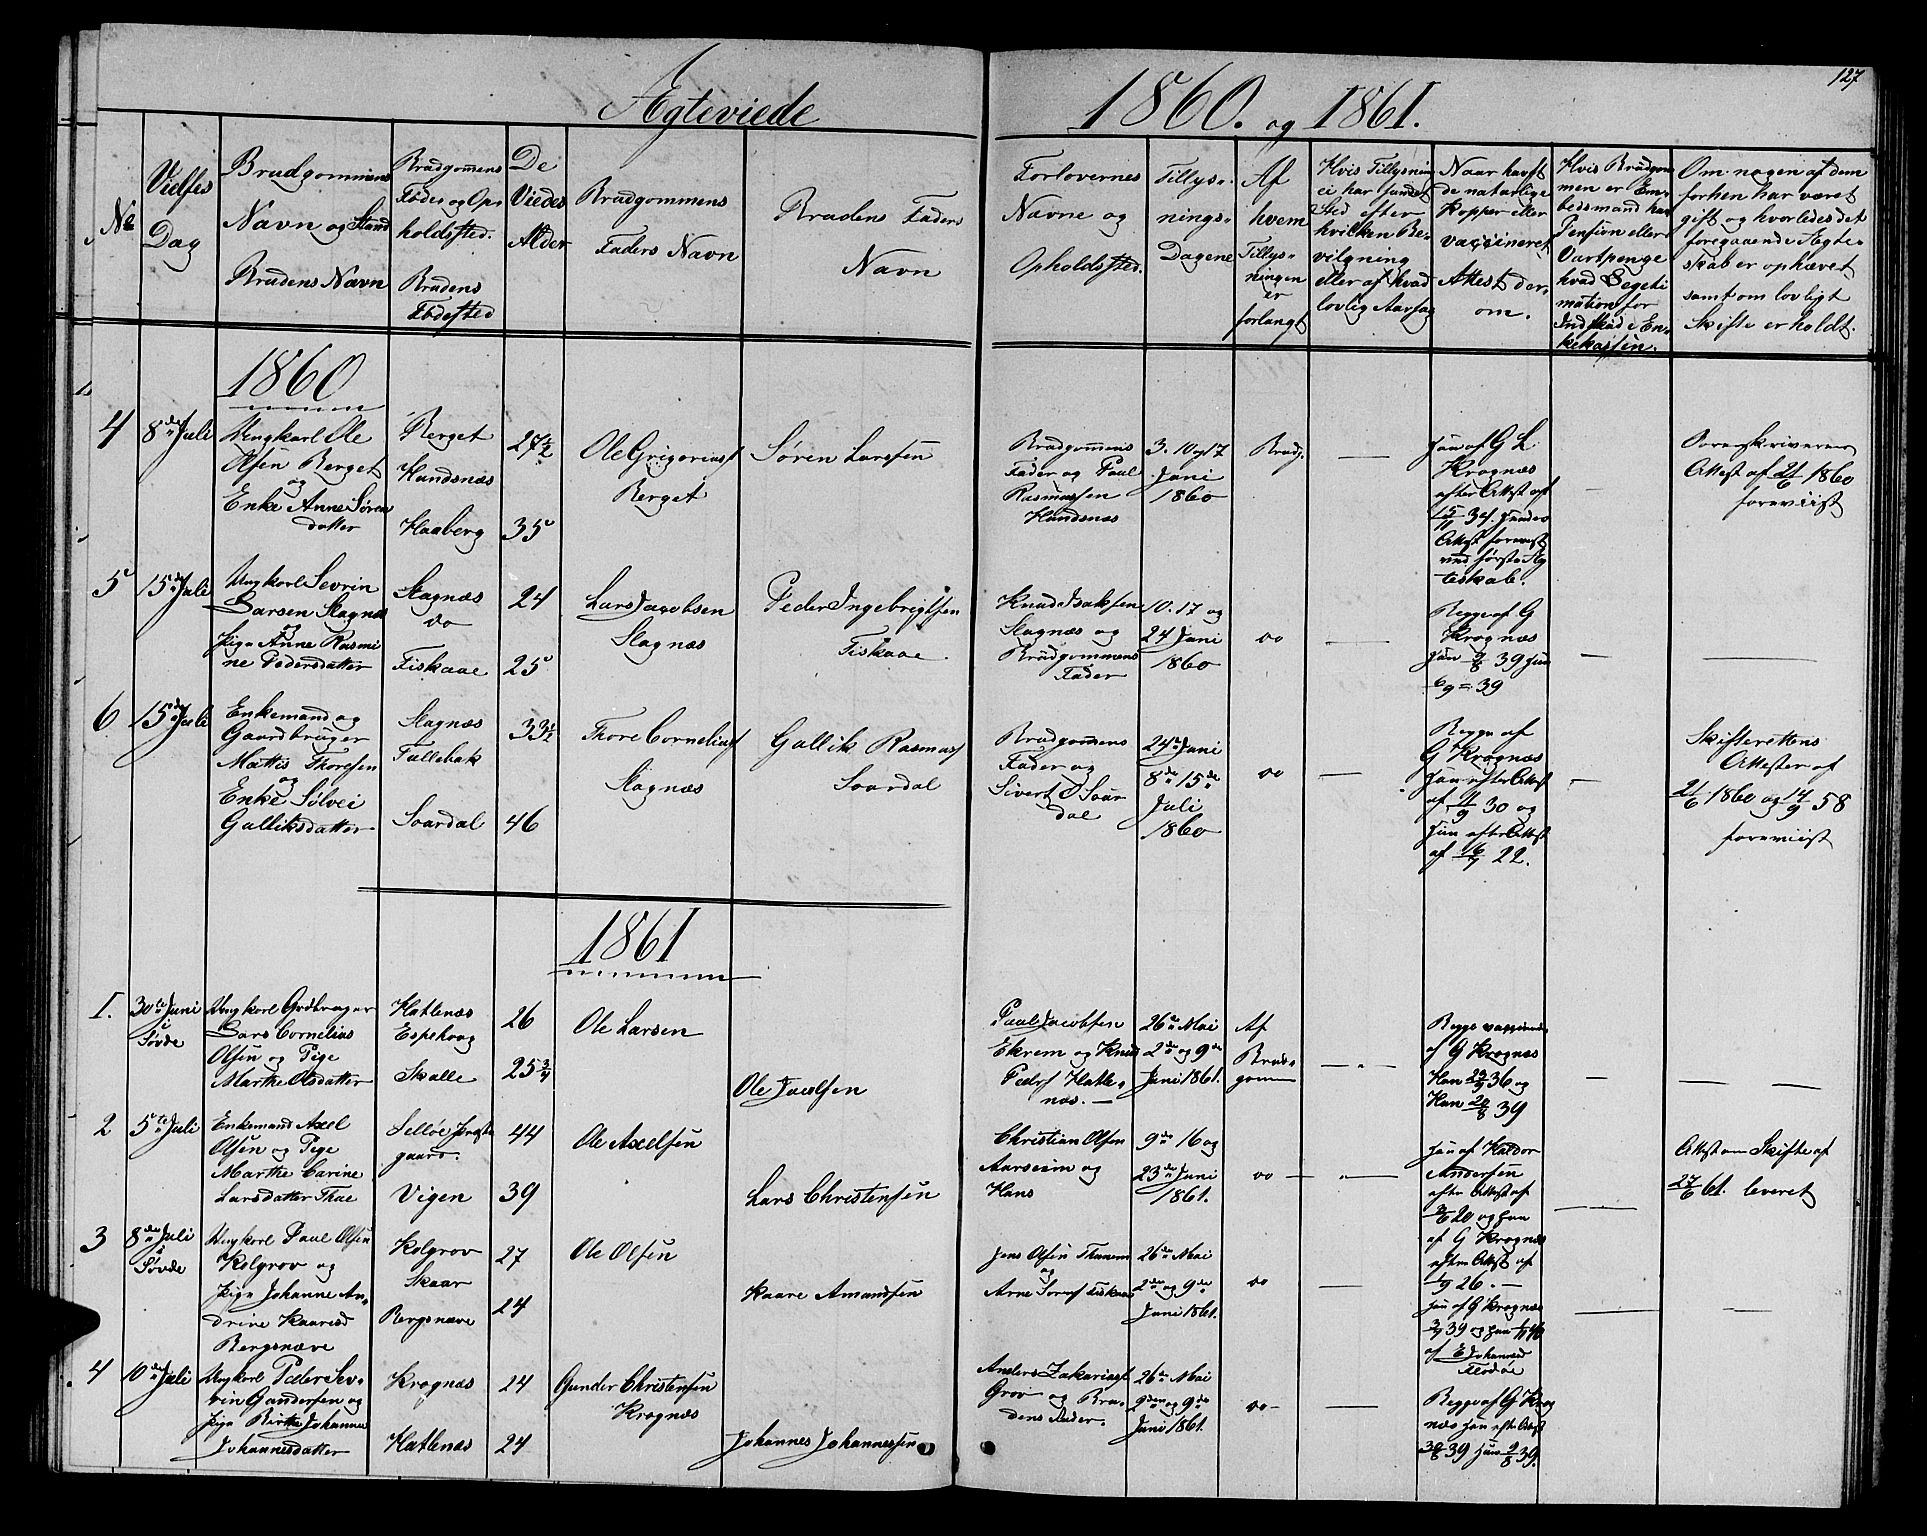 127
Ægteviede 1860. og 1861.
No
Vielses
Dag
Brudgommens
Navn og Stand
Brudens Navn
Brudgommens
Föde og Op-
holdssted.
Brudens
Födested
De
Viedes
Alder
Brudgommens
Faders Navn
Brudens Faders
Navn
Forlovernes
Navne og
Opholdssted.
Tillys-
nings-
Dagene
Af
hvem
Tillys-
ningen
er
forlangt
Hvis Tillysning
ei har fundet
Sted efter
hvilken Be-
vilgning
eller af hvad
lovlig Aarsag
Naar havt
de naturlige
Kopper eller
vaccineret
Attest der-
om.
Hvis Brudgom
men er Em-
bedsmand har
Pension eller
Vartpenge
hvad Legeti
mation for
Indskud i En-
kekassen.
Om nogen af dem
forhen har været
gift og hvorledes det
foregaaende Ægte-
skab er ophævet
samt om lovligt
Skifte er holdt.
1860
4
8de Juli
Ungkarl Ole
Olsen Berget
og
Enke Anne Søren
datter
Berget
Hundsnæs
Haaberg
27½
35
Ole Grigorius
Berget
Søren Larsen
Brudgommens
Fader og Paul
Rasmussen
Hundsnæs
3. 10 og 17
Juni
1860
Brudg.
Hun af G L
Krognæs
efter Attest af
15/11 34.
Attest forevist
ved første Æg
teskab.
Sorenskriverens
Attest af 21/6 1860
foreviist
5
15de Juli
Ungkarl Sevrin
Larsen Slagnæs
og
Pige Anne Rasmi
ne Pedersdatter
Slagnæs
do
Fiskaae
24
25
Lars Jacobsen
Slagnæs
Peder Ingebrigtsen
Fiskaae
Knud Isaksen
Slagnæs og
Brudgommens
Fader
10. 17 og
24 Juni
1860
do
Begge af G
Krognæs
39 Hun
39
6
15de Juli
Enkemand og
Gaardbruger
Mattis Thoresen
og
Enke Sølvei
Galliksdatter
Slagnæs
Tullebak
Saardal
33½
46
Thore Cornelius
Slagnæs
Gallik Rasmus
Saardal
Brudgommens
Fader og
Sivert S Saar
dal
24de Juni
8de 15de
Juli
1860
do
Begge af
G Krognæs
Han efter Attest
af 30 og
Hun efter Attest
af 16/7 22.
Skifterettens
Attester af
21/6 1860 og 14/9 58
foreviist
1861
1.
30te Juni
i
Søvde
Ungkarl Grdbruger
Lars Cornelius
Olsen og Pige
Marthe Olsdatter
Hatlenæs
Espehaag
Skalle
26
25¾
Ole Larsen
Ole Paulsen
Paul Jacobsen
Ekrem og Knud
Peders Hatle-
næs.
26de Mai
2den og 9de
Juni 1861.
Af
Brud-
gommen
Begge vaccinerede
af G Krognæs
Han 36 og
Hun 39
2
5te Juli
Enkemand Axel
Olsen og Pige
Marthe Carine
Larsdatter Thue
Selløe Præste
gaard.
Vigen
44
39
Ole Axelsen
Lars Christensen
Christian Olsen
Aarseim og
Hans
9de 16 og
23de Juni
1861.
do
Han af Haldor
Andersen
efter Attest af
20 og Hun
af G Krognæs
efter Attest af
26.
Attest om Skifte af
27/6 61. leveret
3
8de Juli
i
Søvde
Ungkarl Paul Olsen
Kolgrov og
Pige Johanne An-
drine Kaaresd
Bergsnæve
Kolgrov
Skaar
Bergsnæve
27
24
Ole Olsen
Kaare Amundsen
Jens Olsen Thunem
og
Arne
26de Mai
2den og 9de
Juni 1861.
do
Han af G Krognæs
39 og Hun
af E Johannesd
4
10de Juli
Ungkarl Peder Sev-
rin Gundersen og
Pige Birthe Johanna
Johannesdatter
Krognæs
Hatlenæs
24
24
Gunder Christensen
Krognæs
Johannes Johannessen
Anders Zakariasd
Grov og Bru-
dens Fader.
26de Mai
2den og 9de
Juni 1861.
do
Begge af G Krog
næs Han efter Attest
39 Hun 39.